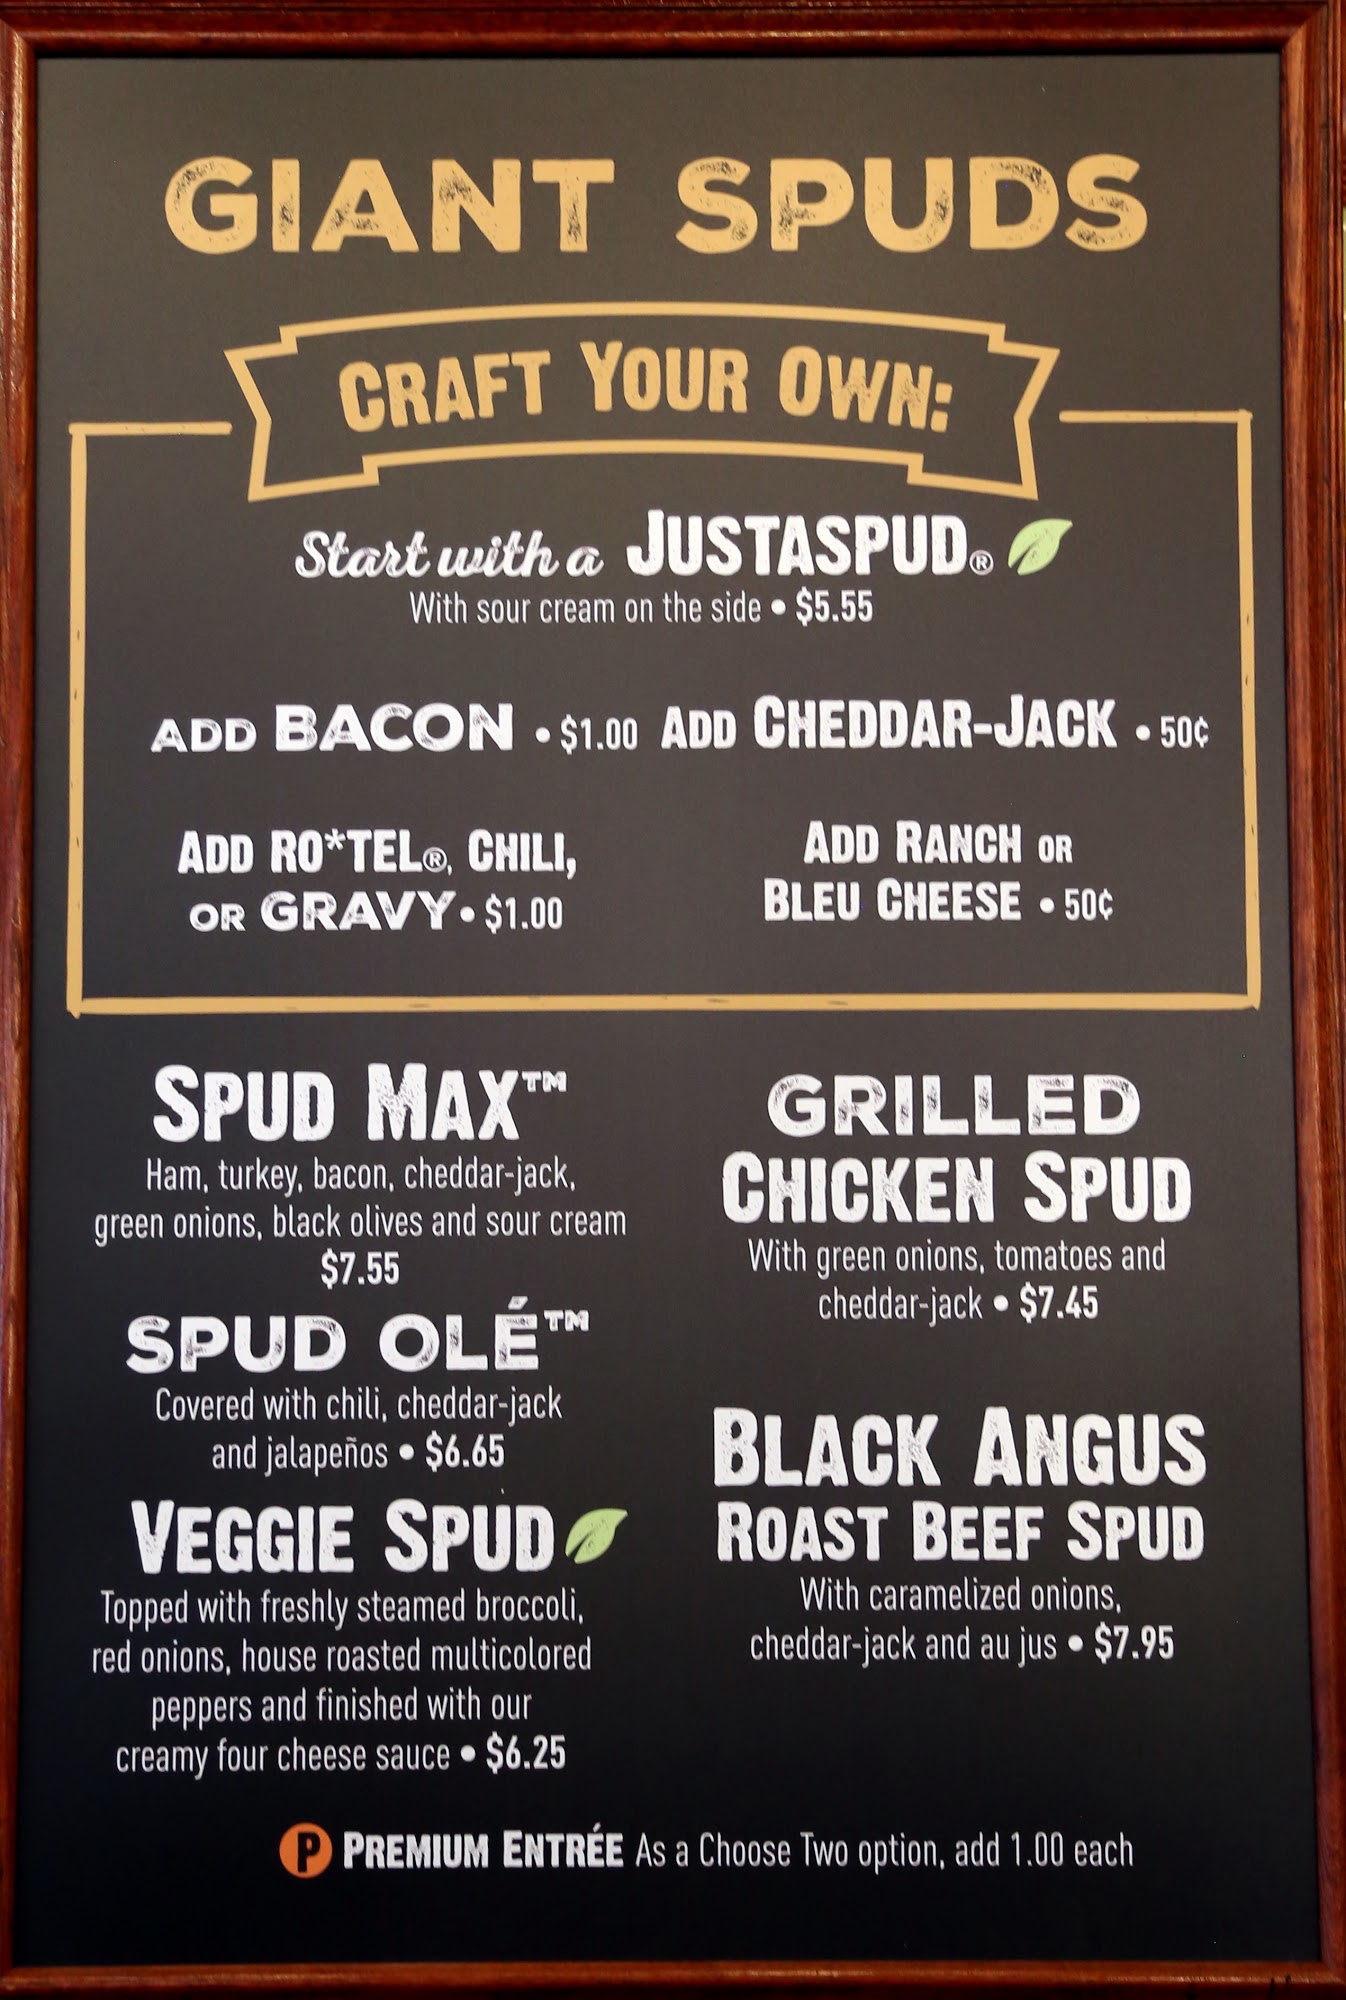 GIANT SPUDS
CRAFT YOUR OWN:
Start with a JUSTASPUD®
With sour cream on the side • $5.55
ADD BACON • $1.00 ADD CHEDDAR-JACK • 50¢
ADD RO*TEL®, CHILI,
OR GRAVY • $1.00
ADD RANCH OR
BLEU CHEESE • 50¢
SPUD MAX™
Ham, turkey, bacon, cheddar-jack,
green onions, black olives and sour cream
$7.55
SPUD OLÉ™
Covered with chili, cheddar-jack
and jalapeños • $6.65
VEGGIE SPUD
Topped with freshly steamed broccoli,
red onions, house roasted multicolored
peppers and finished with our
creamy four cheese sauce • $6.25
GRILLED
CHICKEN SPUD
With green onions, tomatoes and
cheddar-jack • $7.45
BLACK ANGUS
ROAST BEEF SPUD
With caramelized onions,
cheddar-jack and au jus • $7.95
P PREMIUM ENTRÉE As a Choose Two option, add 1.00 each